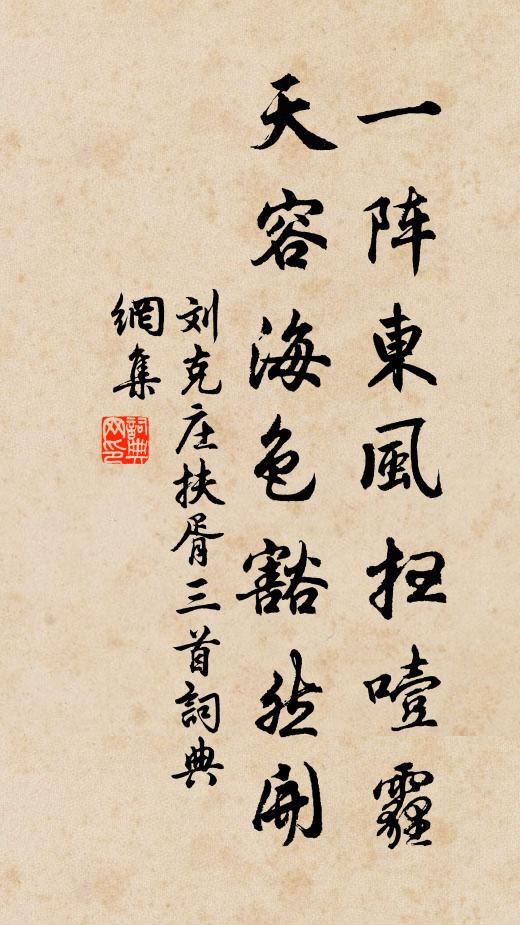 一阵東風扫噎霾
天容海色豁然開
刘克庄扶胥三首詞典
網集
詞典網印